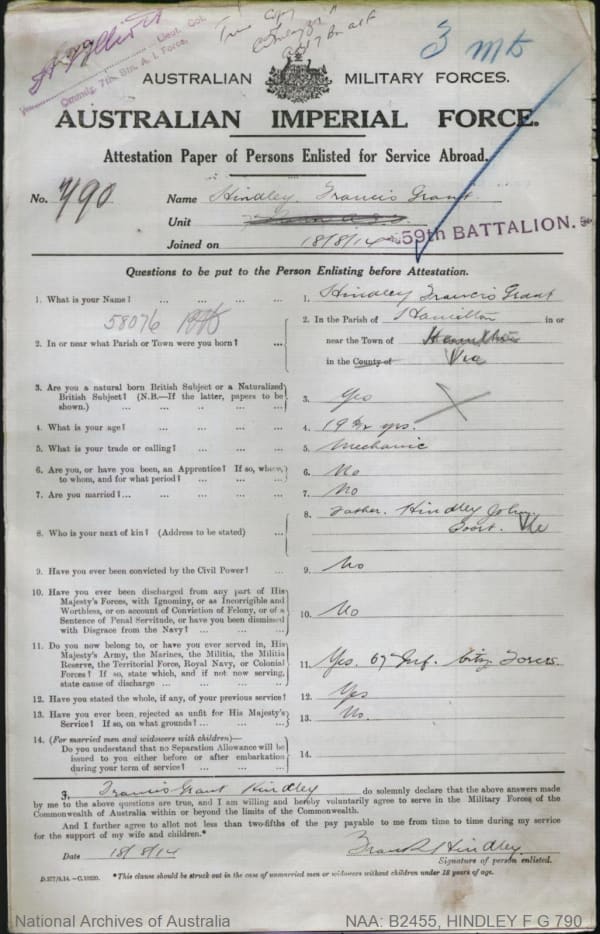 True Copy
3 mts
Lieut. Col.
Commdg. 7th Bn. A. I. Force.
AUSTRALIAN MILITARY FORCES.
AUSTRALIAN IMPERIAL FORCE.
Attestation Paper of Persons Enlisted for Service Abroad.
No. 790 Name Hindley, Francis Grant
Unit
Joined on 18/8/14 59th BATTALION.
Questions to be put to the Person Enlisting before Attestation.
1. What is your Name? ... ... ... ... 1. Hindley Francis Grant
58076
2. In or near what Parish or Town were you born? ... 2. In the Parish of Hamilton in or
near the Town of Hamilton
in the County of Vic
3. Are you a natural born British Subject or a Naturalized
British Subject? (N.B.—If the latter, papers to be
shown.) ... ... ... ... 3. Yes
4. What is your age? ... ... ... ... 4. 19 yrs.
5. What is your trade or calling? ... ... ... 5. Mechanic
6. Are you, or have you been, an Apprentice? If so, where,
to whom, and for what period? ... ... ... 6. No
7. Are you married?... ... ... ... ... 7. No
8. Who is your next of kin? (Address to be stated) ... 8. Father. Hindley John
Boort. Vic
9. Have you ever been convicted by the Civil Power? ... 9. No
10. Have you ever been discharged from any part of His
Majesty's Forces, with Ignominy, or as Incorrigible and
Worthless, or on account of Conviction of Felony, or of a
Sentence of Penal Servitude, or have you been dismissed
with Disgrace from the Navy? ... ... ... 10. No
11. Do you now belong to, or have you ever served in, His
Majesty's Army, the Marines, the Militia, the Militia
Reserve, the Territorial Force, Royal Navy, or Colonial
Forces? If so, state which, and if not now serving,
state cause of discharge ... ... ... 11. Yes. 67 Inf. Citz Forces.
12. Have you stated the whole, if any, of your previous service? 12. Yes
13. Have you ever been rejected as unfit for His Majesty's
Service? If so, on what grounds? ... ... ... 13. No.
14. (For married men and widowers with children)—
Do you understand that no Separation Allowance will be
issued to you either before or after embarkation
during your term of service? ... ... ... 14.
I, Francis Grant Hindley do solemnly declare that the above answers made
by me to the above questions are true, and I am willing and hereby voluntarily agree to serve in the Military Forces of the
Commonwealth of Australia within or beyond the limits of the Commonwealth.
And I further agree to allot not less than two-fifths of the pay payable to me from time to time during my service
for the support of my wife and children.*
Date 18/8/14 Frank Hindley
Signature of person enlisted.
D.377/8.14.—C.10020. *This clause should be struck out in the case of unmarried men or widowers without children under 18 years of age.
National Archives of Australia NAA: B2455, HINDLEY F G 790